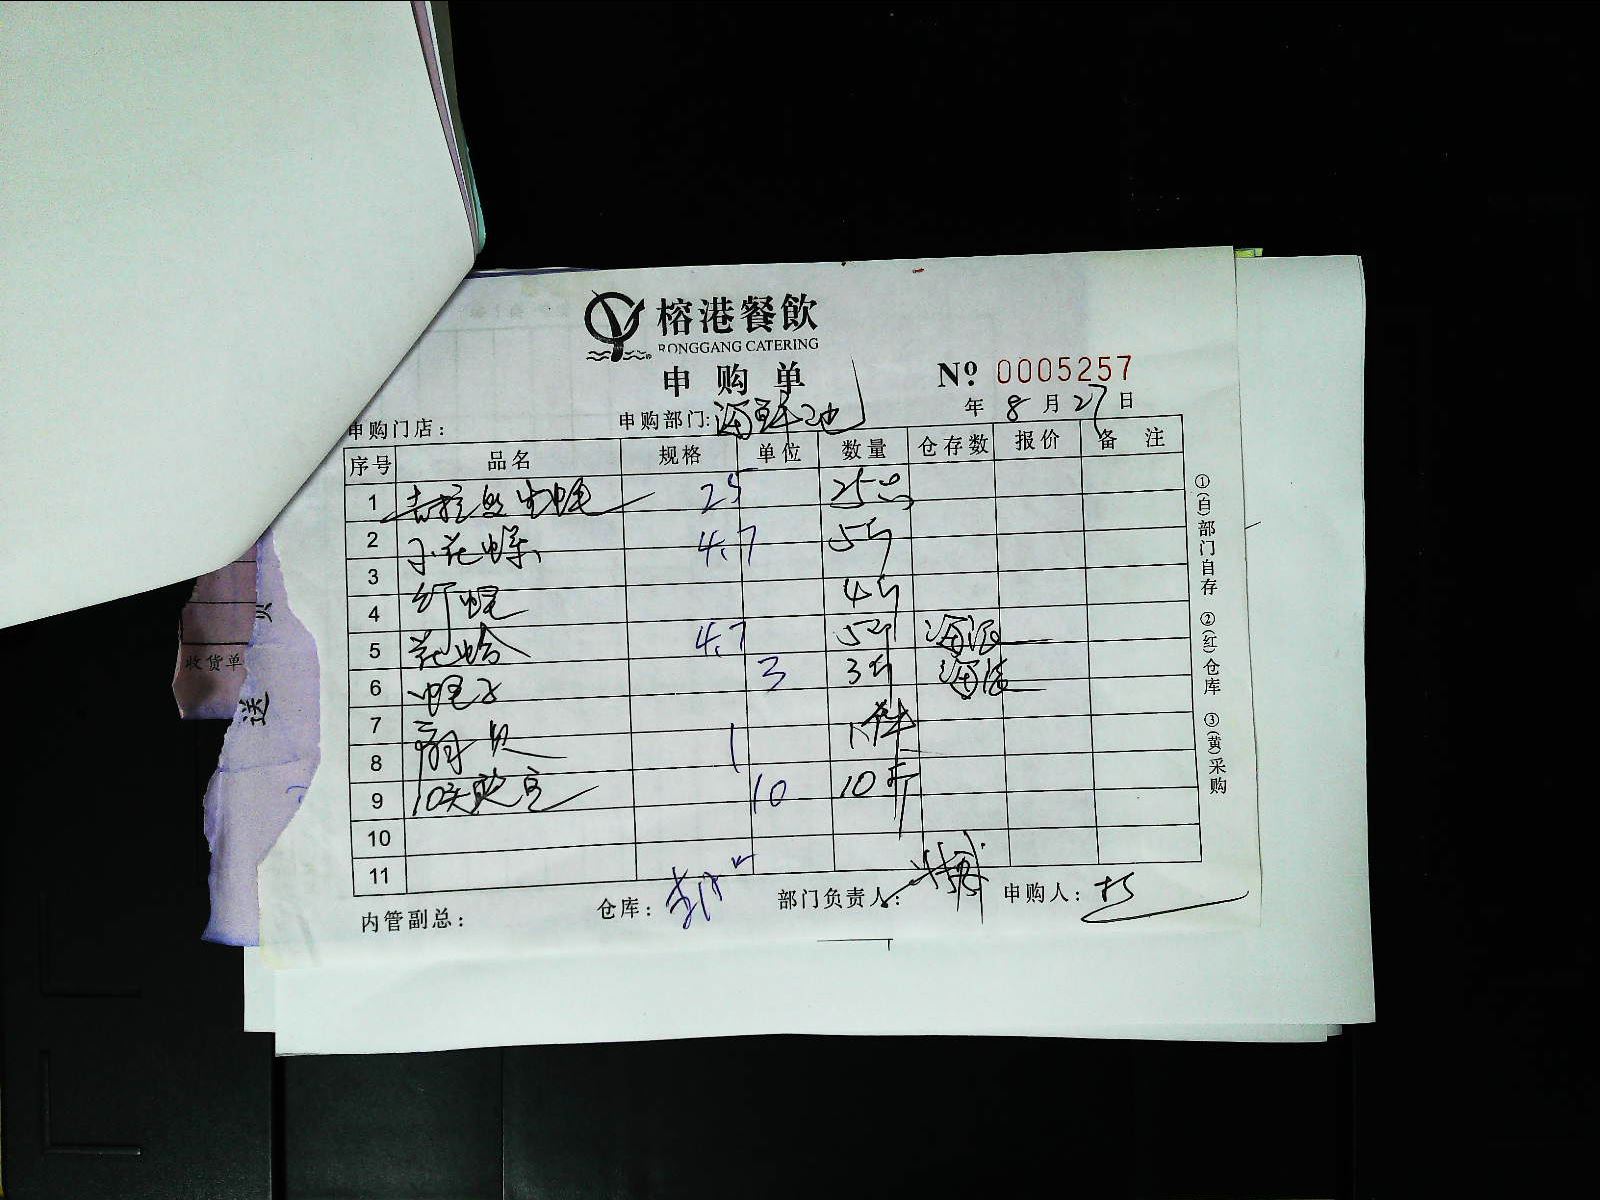 榕港餐飲
RONGGANG CATERING
申购单
Nº 0005257
申购门店: 申购部门:海鲜池 年 8 月 27 日
序号 品名 规格 单位 数量 仓存数 报价 备注
1 吉拉多生蚝 25 25只
2 小花螺 4.7 5斤
3
4 4斤
5 花蛤 4.7 5斤
6 蛏子 3 3斤
7
8 扇贝 1 1件
9 10头鲍 10 10斤
10
11
内管副总: 仓库: 部门负责人: 申购人:
①(自)部门自存 ②(红)仓库 ③(黄)采购
收货单
送